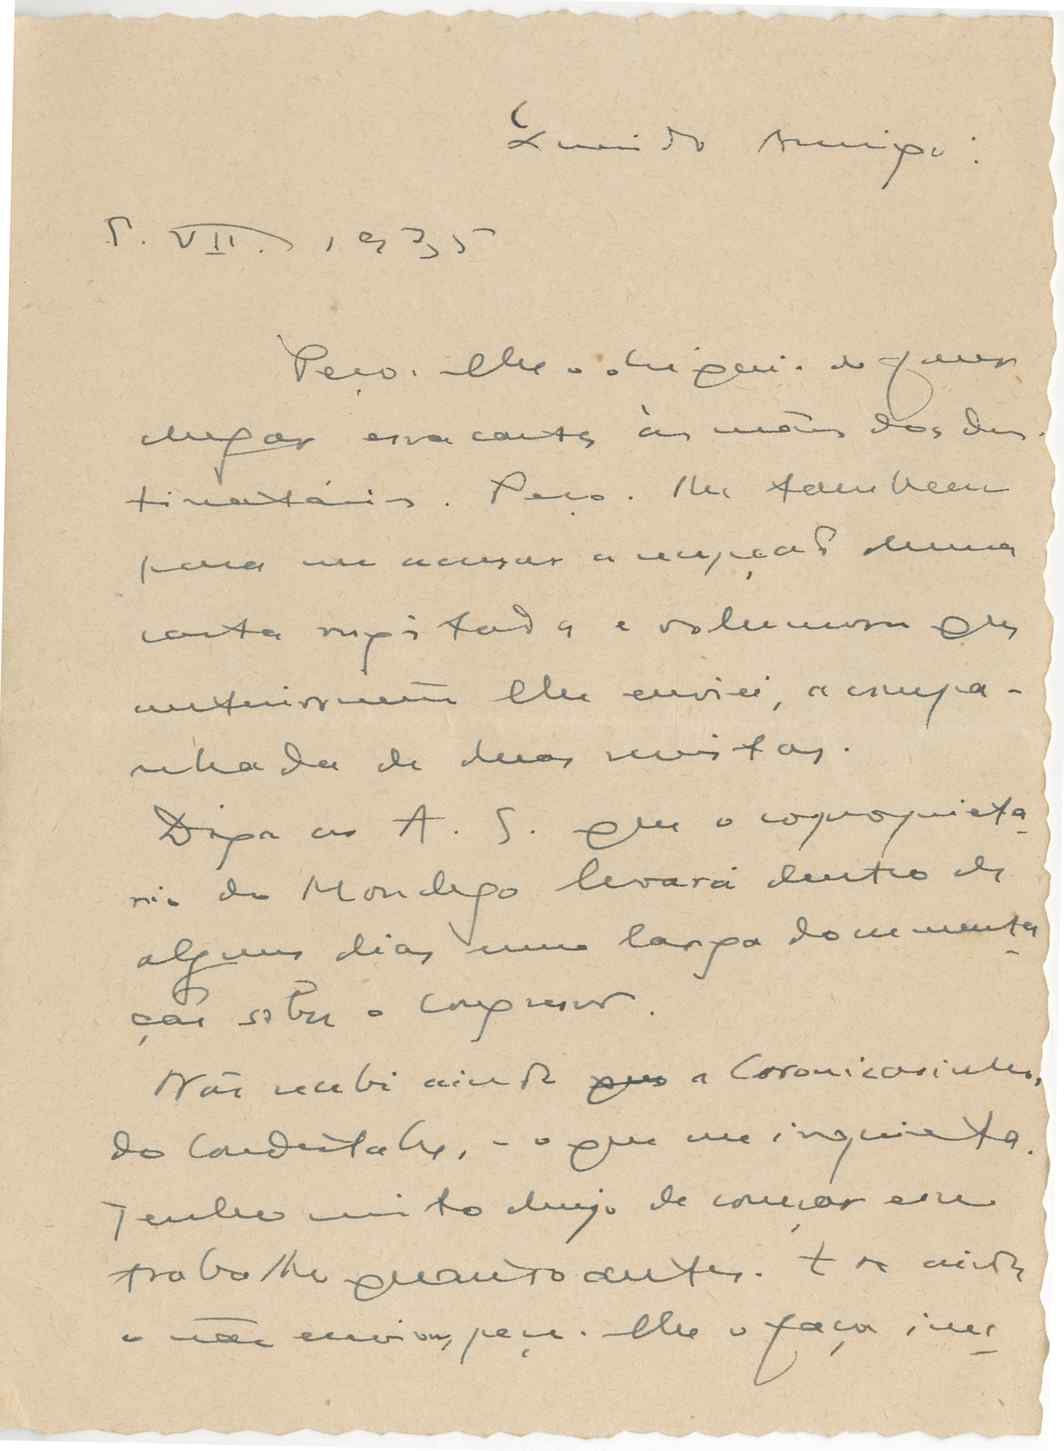 Querido Amigo:
5. VII. 1935
Peço-lhe o obsequio de fazer
chegar essa carta às mãos dos des-
tinatários. Peço-lhe tambem
para me acusar a recepção duma
carta registada e volumosa que
anteriormente lhe enviei, acompa-
nhada de duas revistas.
Diga ao A. S. que o coproprietá-
rio do Mondego levará dentro de
alguns dias uma larga documenta-
ção sôbre o Congresso.
Não recebi ainda a Coronica
do Condestabre, - o que me inquieta.
Tenho muito desejo de começar esse
trabalho quanto antes. E se ainda
o não enviou, peço-lhe o faça ime-